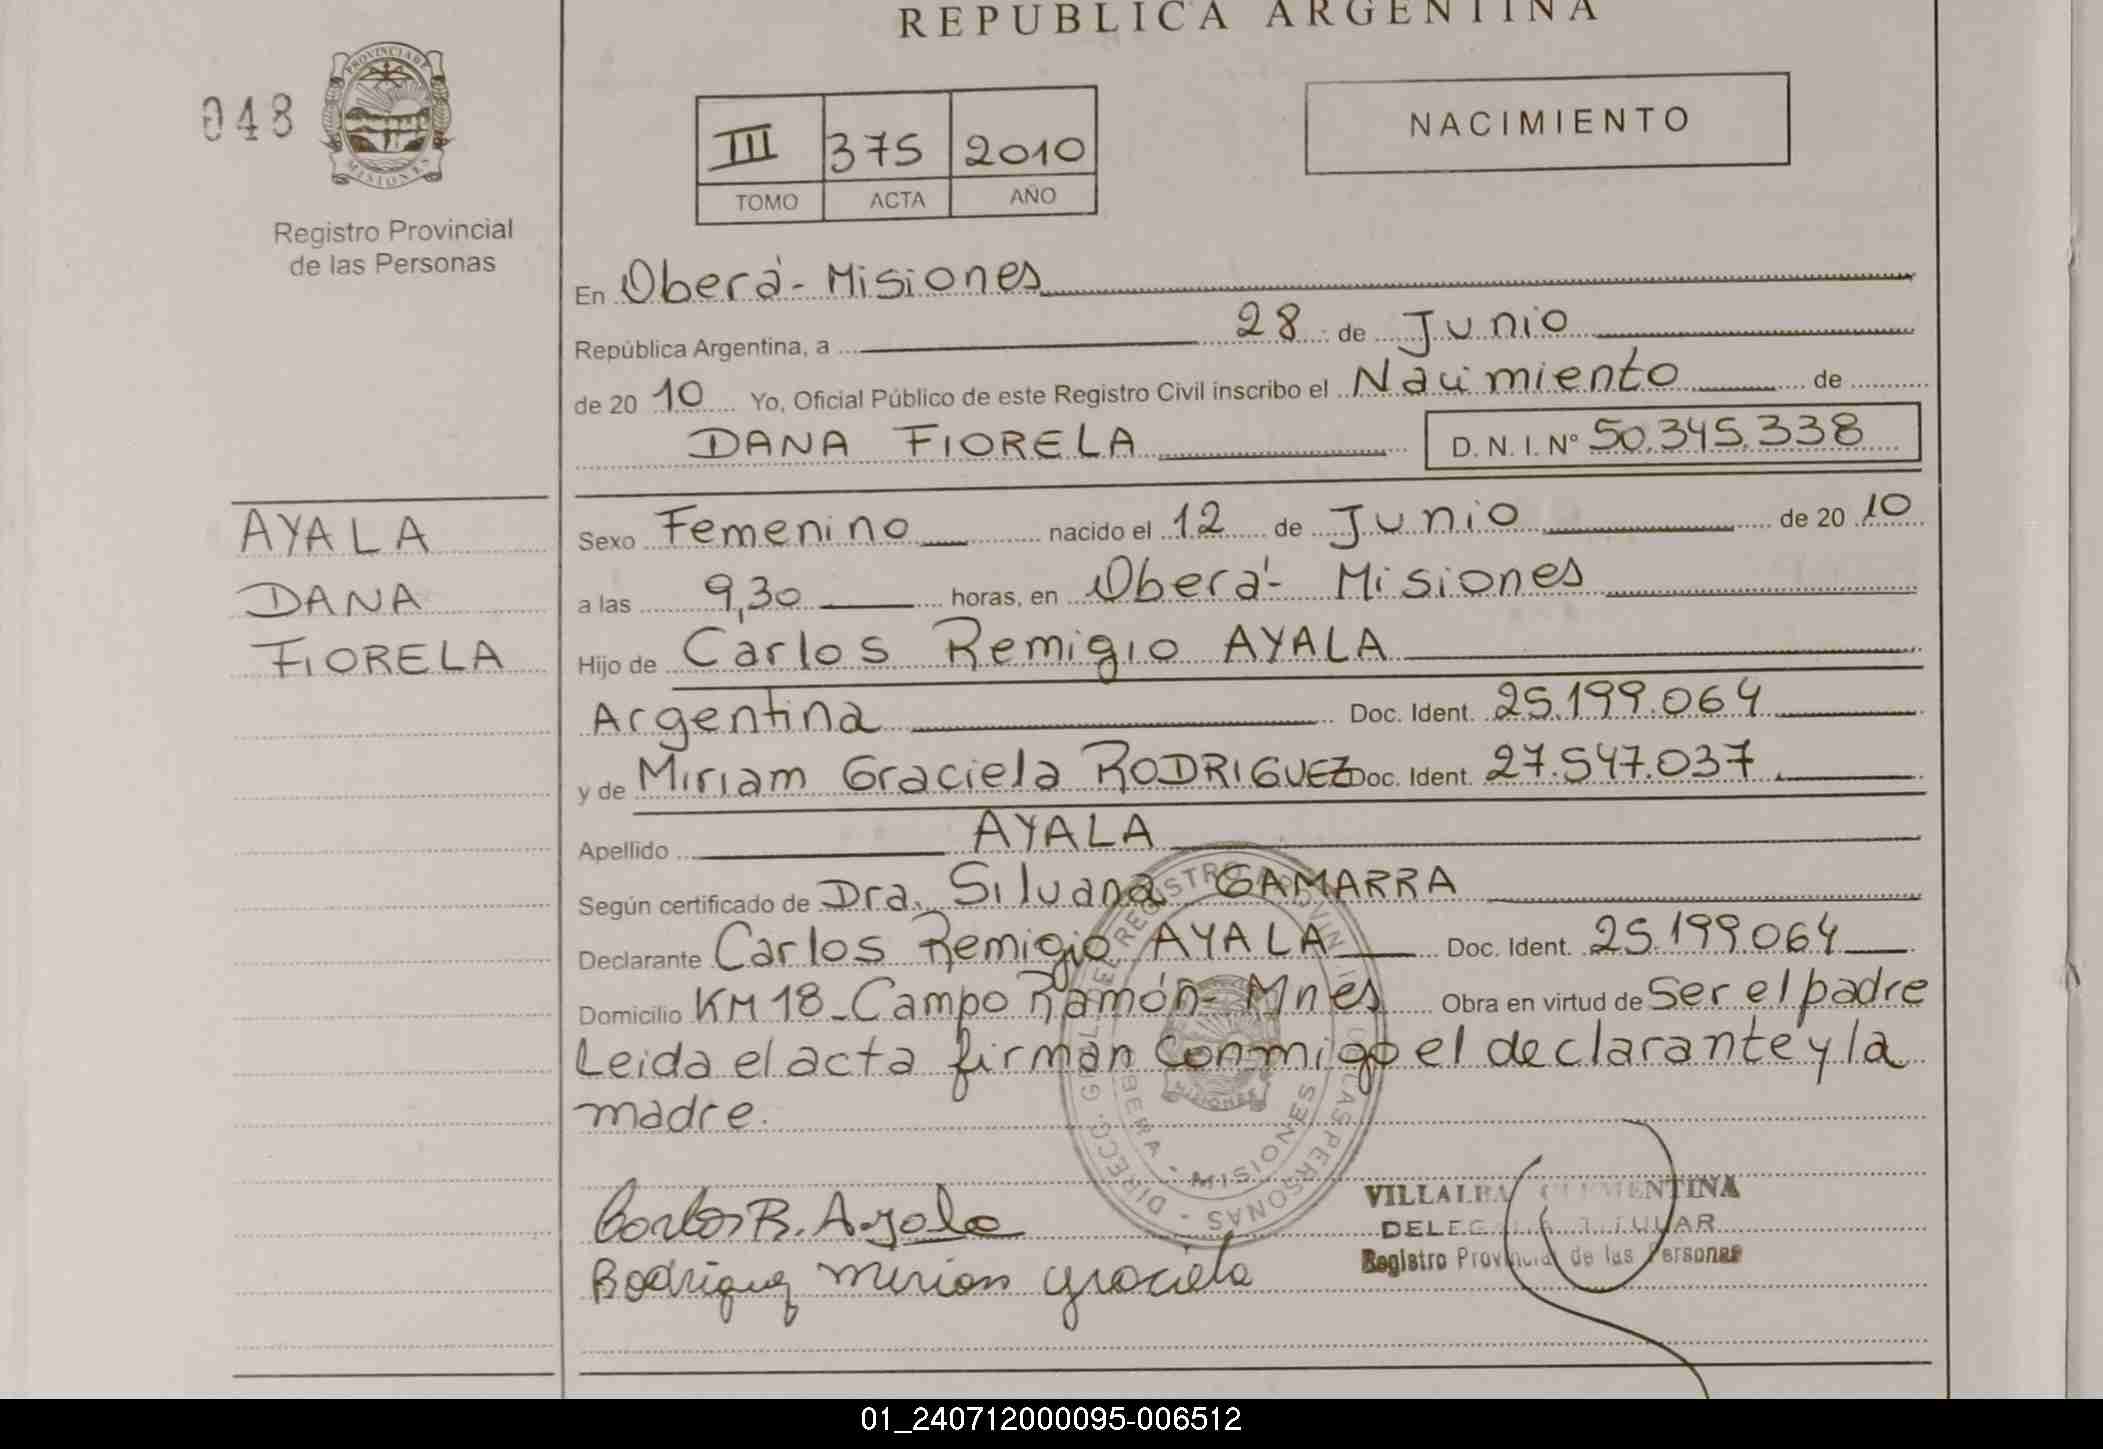 REPUBLICA ARGENTINA
048
PROVINCIA DE
MISIONES
Registro Provincial
de las Personas
III 375 2010
TOMO ACTA AÑO
NACIMIENTO
En Oberá - Misiones
República Argentina, a 28 de Junio
de 20 10 Yo, Oficial Público de este Registro Civil inscribo el Nacimiento de
DANA FIORELA D. N. I. Nº 50.345.338
AYALA
DANA
FIORELA
Sexo Femenino nacido el 12 de Junio de 20 10
a las 9,30 horas, en Oberá - Misiones
Hijo de Carlos Remigio AYALA
Argentina Doc. Ident. 25.199.064
y de Miriam Graciela RODRIGUEZ Doc. Ident. 27.547.037
Apellido AYALA
Según certificado de Dra. Silvana GAMARRA
Declarante Carlos Remigio AYALA Doc. Ident. 25.199.064
Domicilio KM 18 - Campo Ramón - Mnes Obra en virtud de Ser el padre
Leida el acta firman conmigo el declarante y la
madre.
Carlos R. Ayala
Rodriguez Mirian Graciela
VILLALBA CLEMENTINA
DELEGADA TITULAR
Registro Provincial de las Personas
MISIONES
01_240712000095-006512